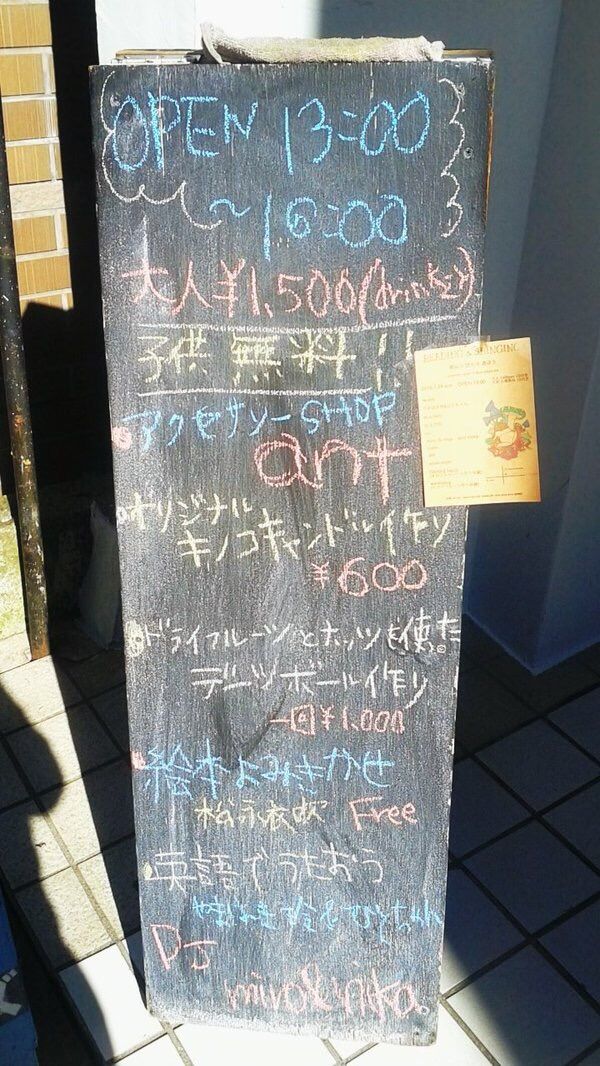 OPEN 13:00
~16:00
大人¥1,500(drink付)
子供 無料!!
アクセサリーSHOP
ant
オリジナル
キノコキャンドル作り
¥600
ドライフルーツとナッツを使った
デーツボール作り
一回¥1,000
絵本よみきかせ
松永衣吹 Free
英語でうたおう
DJ
READING & SINGING